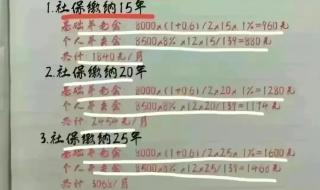 1.社保缴纳15年
基础养老金 8000×(1+0.6)/2×15×1%=960元
个人养老金 8500×8%×12×15/139=880元
共计 1840元/月
2.社保缴纳20年
基础养老金 8000×(1+0.6)/2×20×1%=1280元
个人养老金 8500×8%×12×20/139=1174元
共计 2454元/月
3.社保缴纳25年
基础养老金 8000×(1+0.6)/2×25×1%=1600元
个人养老金 8500×8%×12×25/139=1468元
共计 3068/月